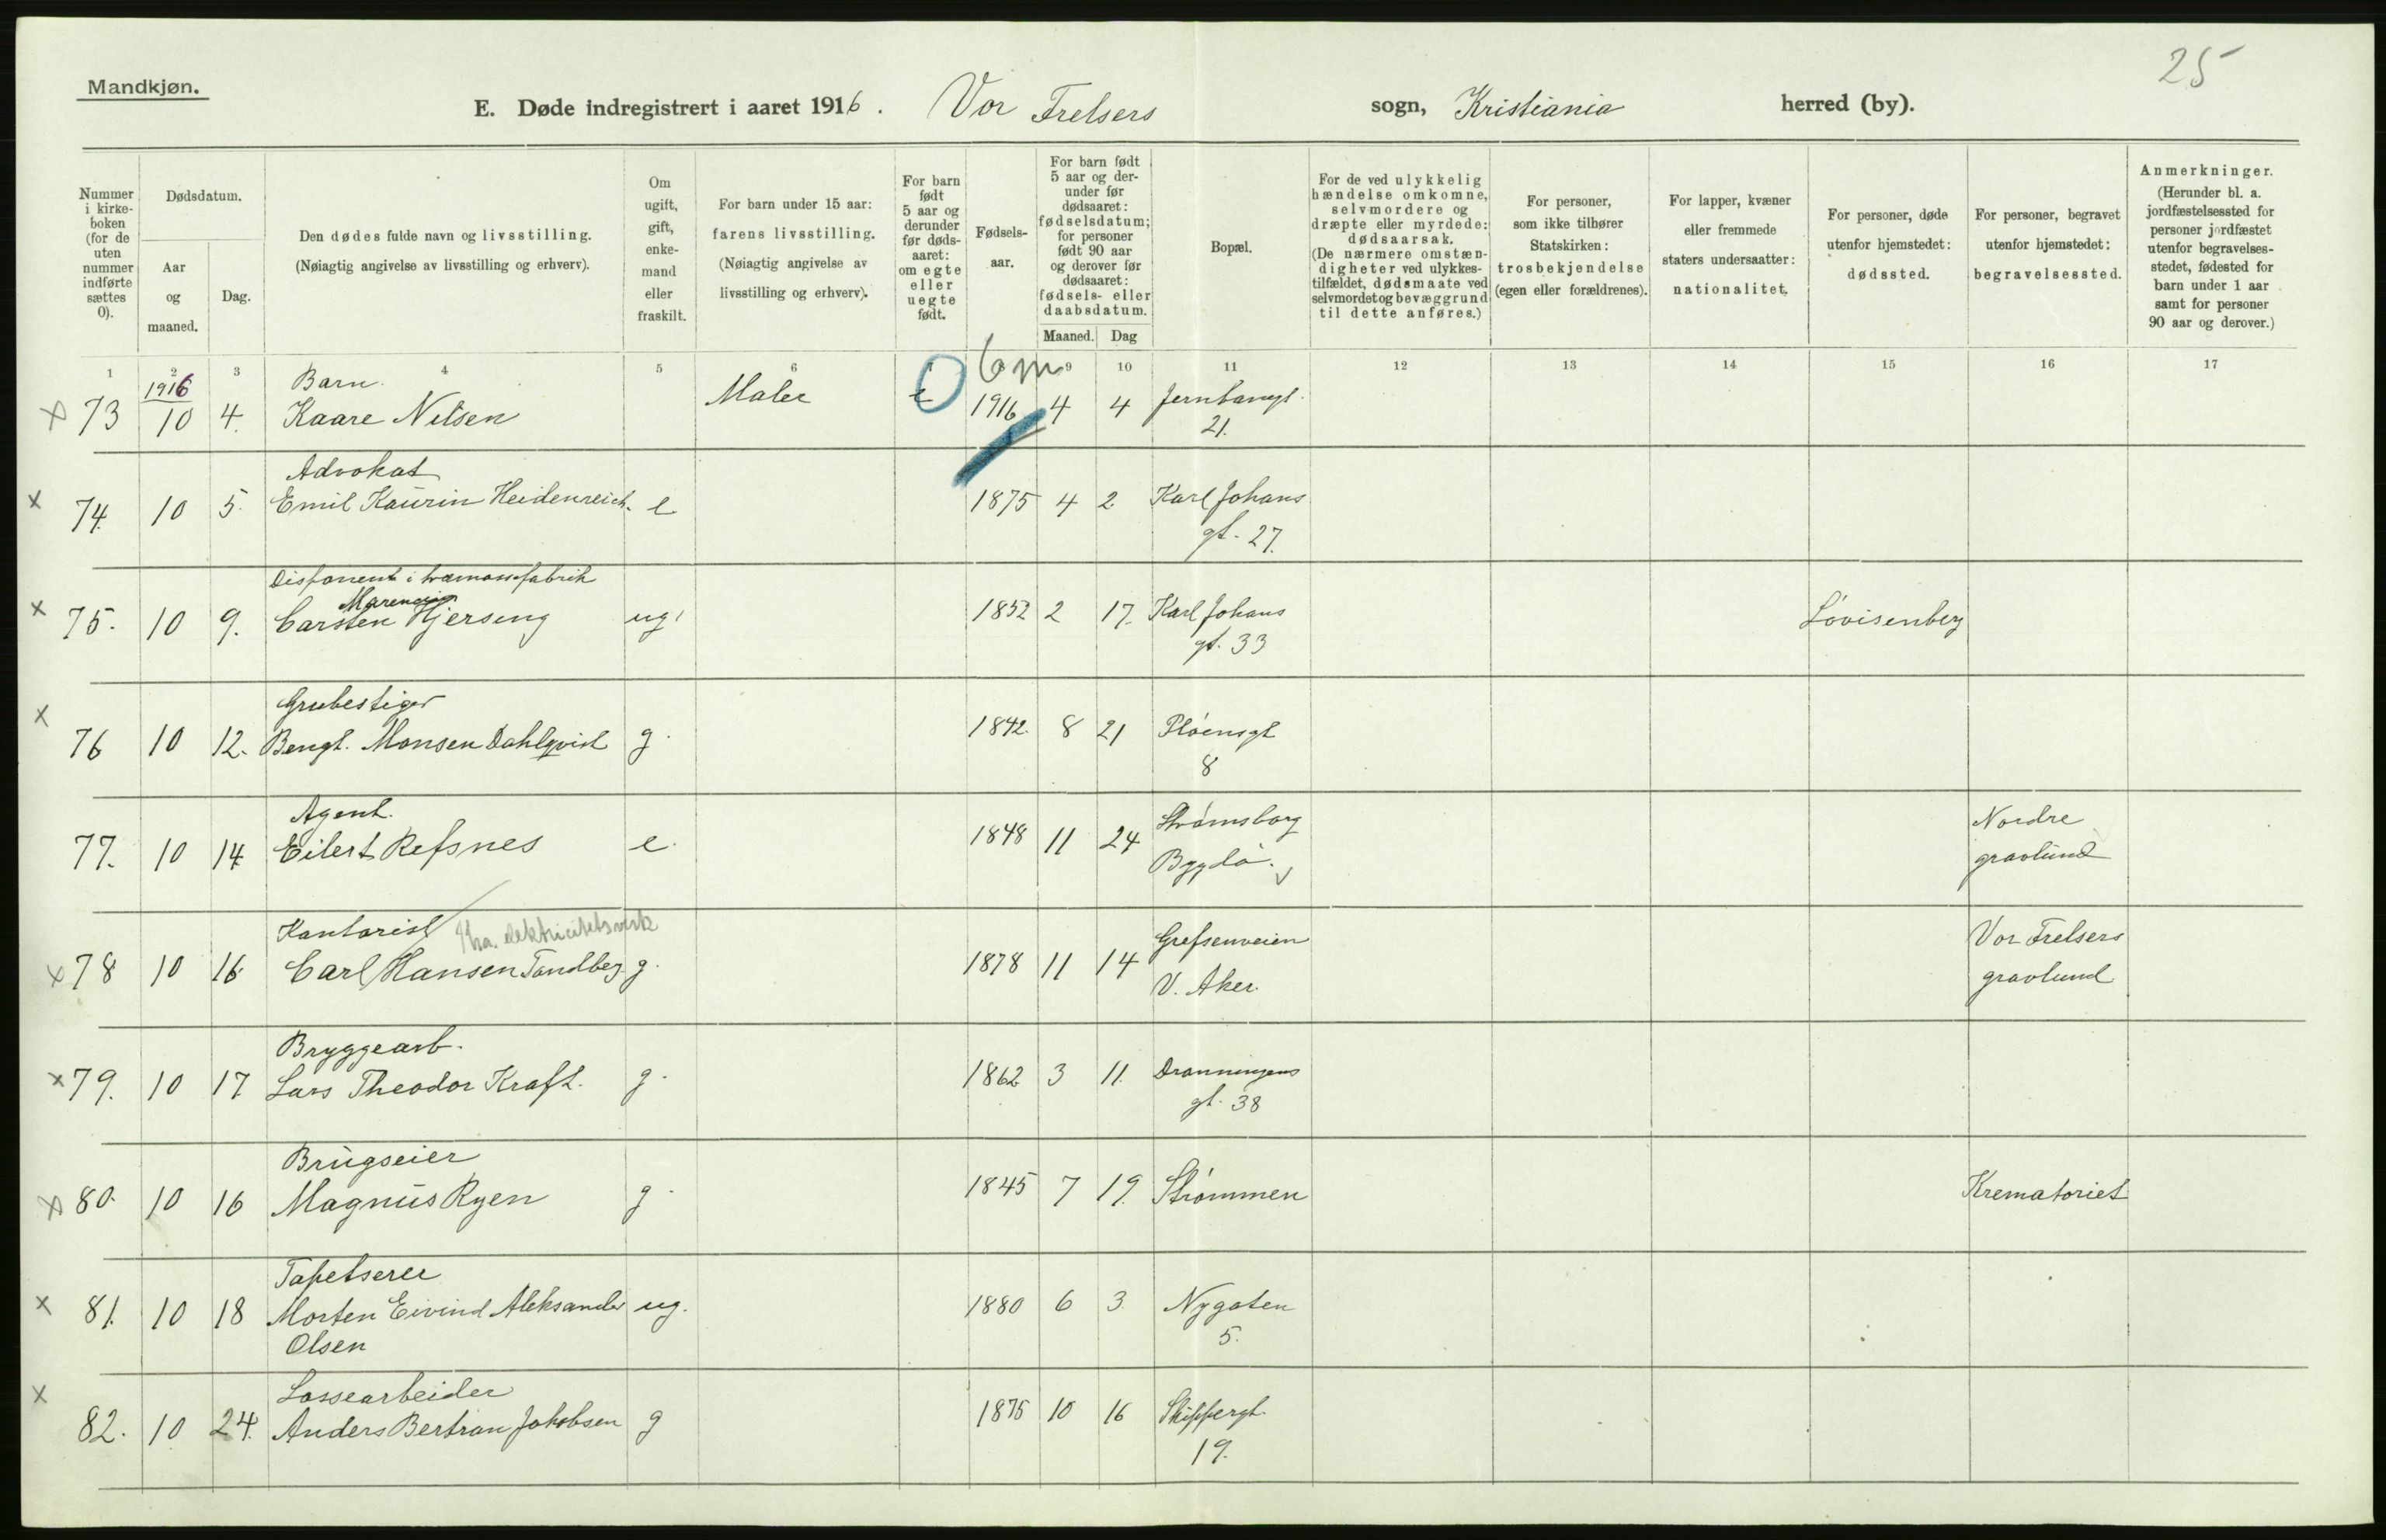 25
Mandkjøn.
E. Døde indregistrert i aaret 1916. Vor Frelsers sogn, Kristiania herred (by).
Nummer i kirkeboken (for de uten nummer indførte sættes 0).
Dødsdatum.
Aar og maaned.
Dag.
Den dødes fulde navn og livsstilling.
(Nøiagtig angivelse av livsstilling og erhverv).
Om ugift, gift, enkemand eller fraskilt.
For barn under 15 aar: farens livsstilling.
(Nøiagtig angivelse av livsstilling og erhverv).
For barn født 5 aar og derunder før dødsaaret: om egte eller uegte født.
Fødselsaar.
For barn født 5 aar og derunder før dødsaaret: fødselsdatum; for personer født 90 aar og derover før dødsaaret: fødsels- eller daabsdatum.
Maaned. Dag
Bopæl.
For de ved ulykkelig hændelse omkomne, selvmordere og dræpte eller myrdede: dødsaarsak.
(De nærmere omstændigheter ved ulykkestilfældet, dødsmaate ved selvmordet og bevæggrund til dette anføres.)
For personer, som ikke tilhører Statskirken: trosbekjendelse (egen eller forældrenes).
For lapper, kvæner eller fremmede staters undersaatter: nationalitet.
For personer, døde utenfor hjemstedet: dødssted.
For personer, begravet utenfor hjemstedet: begravelsessted.
Anmerkninger.
(Herunder bl. a. jordfæstelsessted for personer jordfæstet utenfor begravelsesstedet, fødested for barn under 1 aar samt for personer 90 aar og derover.)
1 2 3 4 5 6 7 9 10 11 12 13 14 15 16 17
1916 Barn. 6 m
x 73 10 4. Kaare Nilsen Maler e 1916 4 4 Jernbangt.
21.
Advokat
x 74 10 5. Emil Kaurin Heidenreich. e 1875 4 2 Karl Johans
gt. 27.
Disponent i træmassefabrik
x 75. 10 9. Carsten Hjerseng ug. 1852 2 17. Karl Johans Lovisenberg
gt. 33
Grubestiger
x 76 10 12. Bengt. Monsen Dahlqvist g. 1842. 8 21 Pløensgt
8
Agent. Strømsborg Nordre
77. 10 14 Eilert Refsnes e. 1848 11 24 Bygdø. gravlund
Kontorist Kra. elektricitetsverk Grefsenveien Vor Frelsers
x 78 10 16 Carl Hansen Tandberg. g. 1878 11 14 V. Aker. gravlund
Bryggearb.
x 79. 10 17 Lars Theodor Kraft. g. 1862 3 11. Dronningens
gt. 38
Brugseier
x 80. 10 16 Magnus Ryen g. 1845 7 19. Strømmen Krematoriet
Tapetserer
x 81. 10 18 Morten Eivind Aleksander ug. 1880 6 3. Nygaten
Olsen 5.
Lossearbeider
x 82. 10 24. Anders Bertran Jakobsen g 1875 10 16 Skippergt.
19.